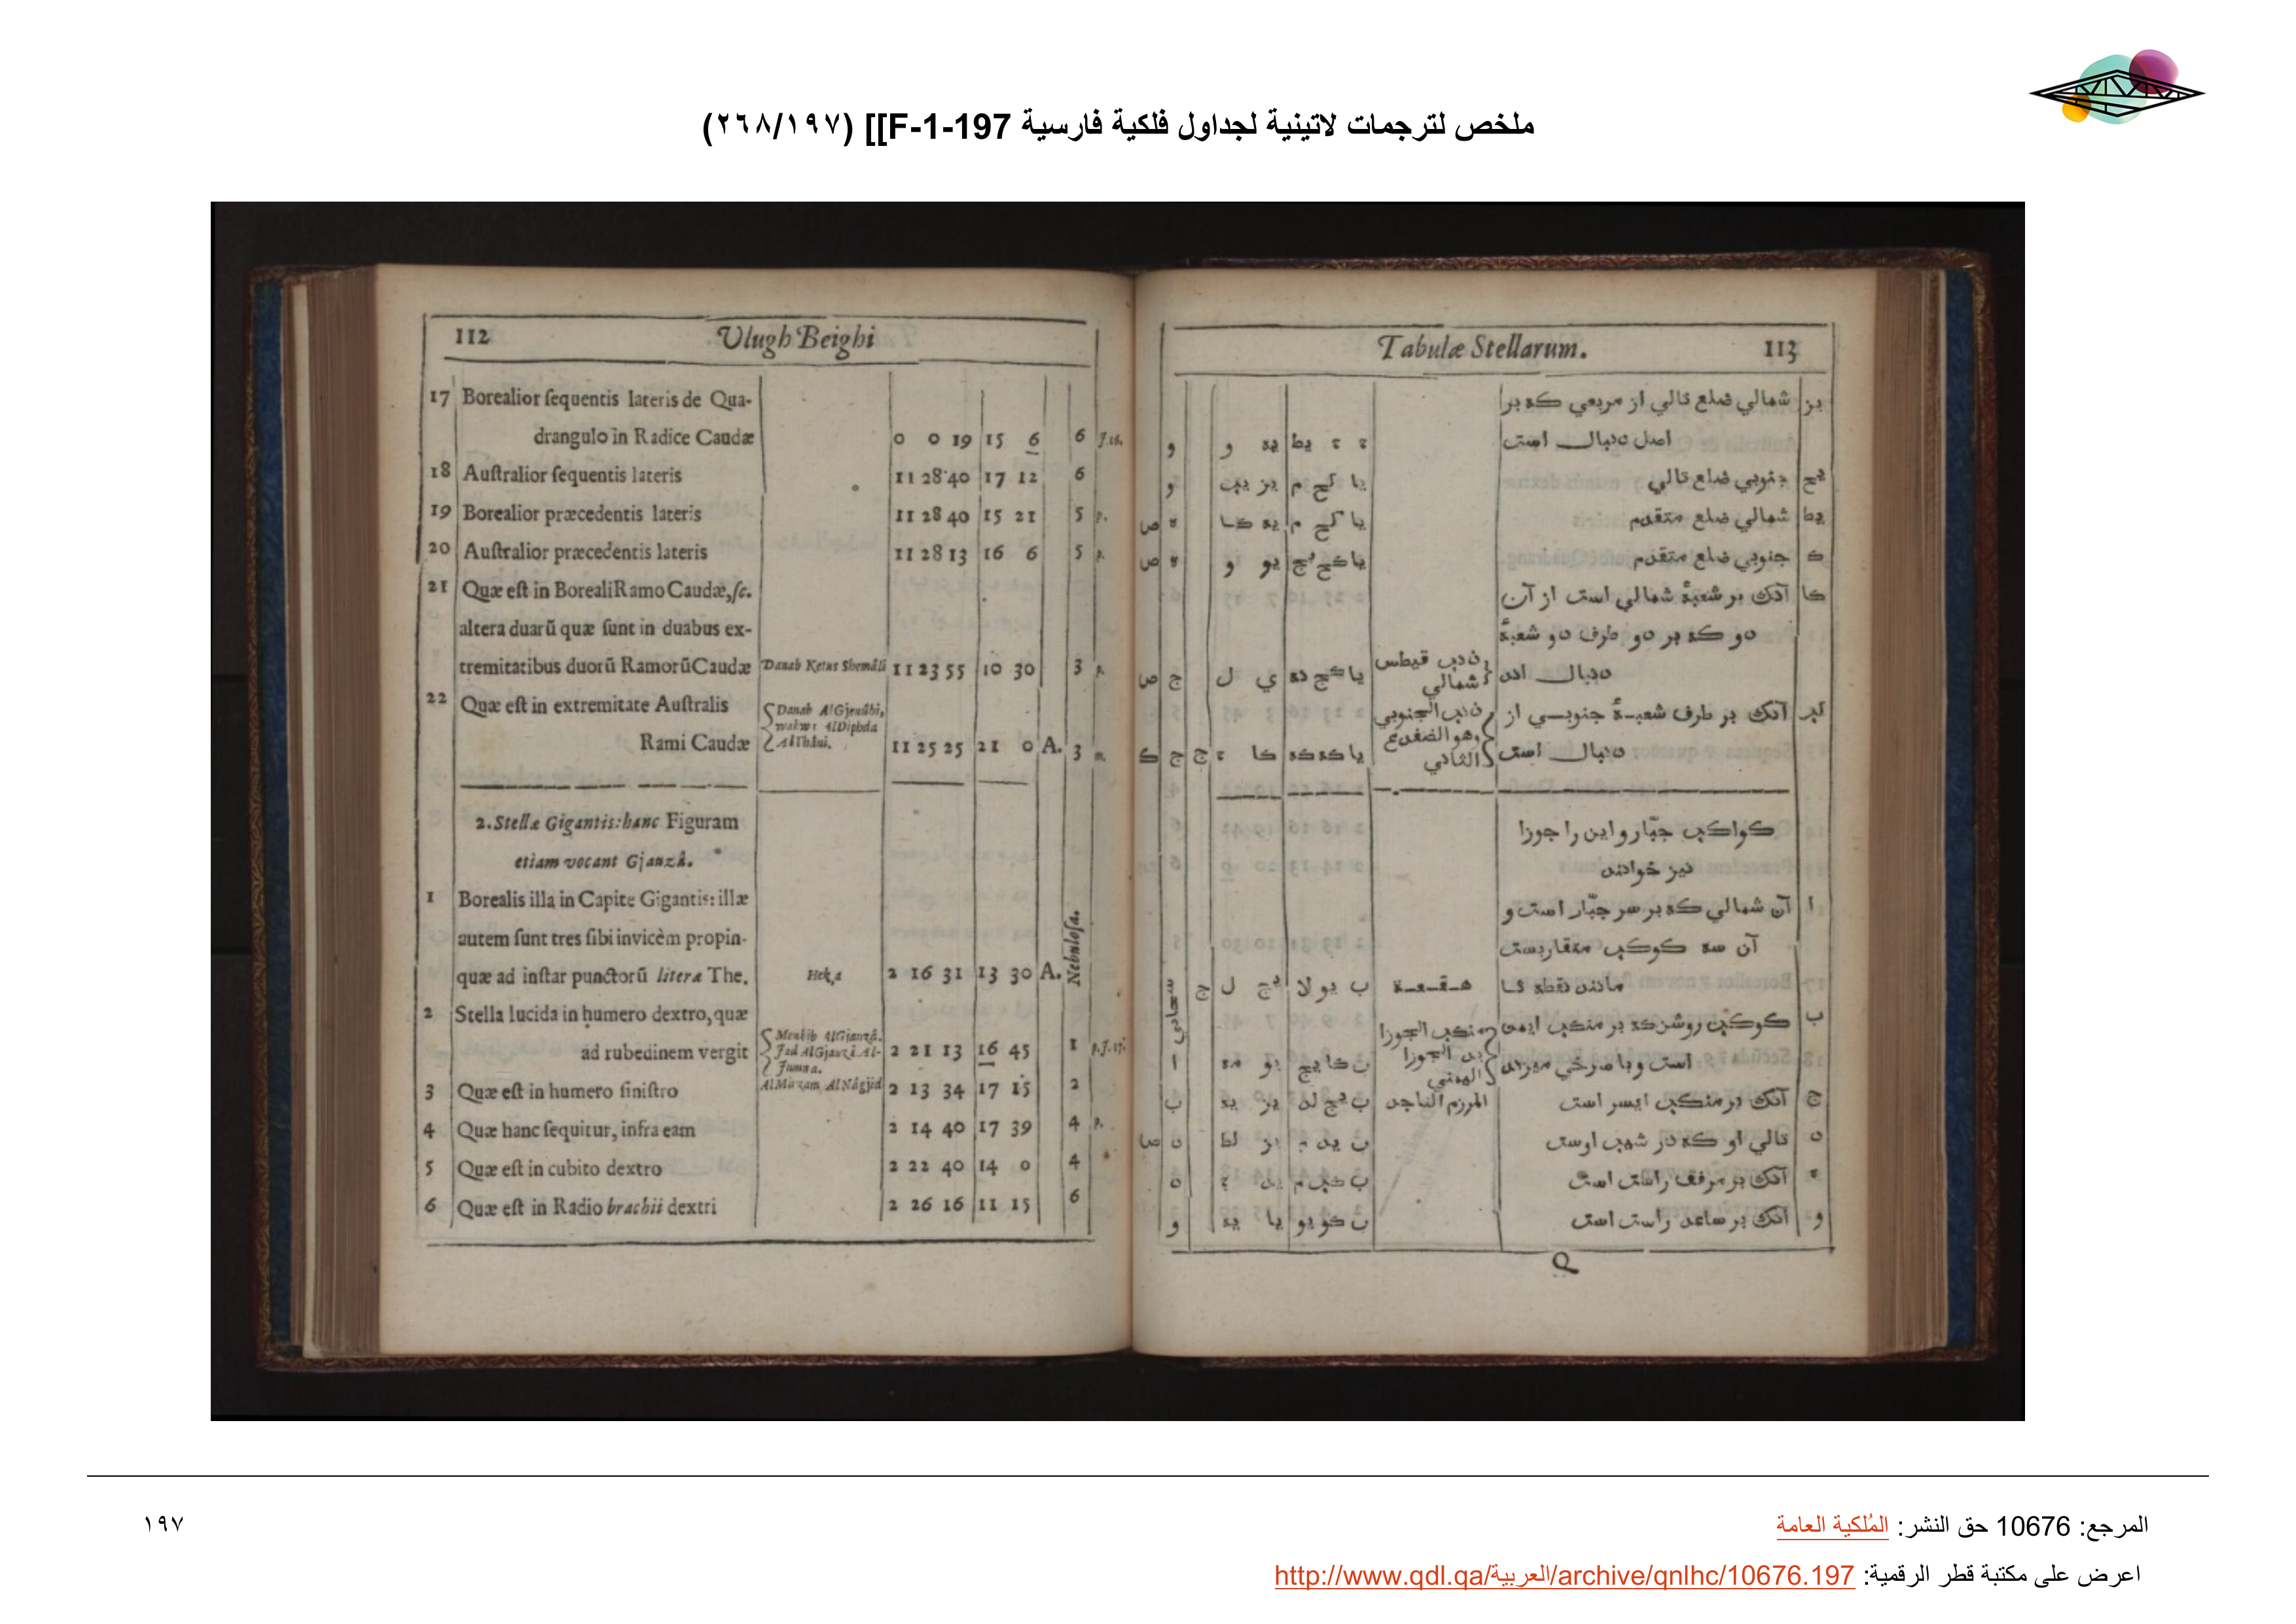 ملخص لترجمات لاتينية لجداول فلكية فارسية F-1-197]] (٢٦٨/١٩٧)
112 Ulugh Beighi
17 Borealior ſequentis lateris de Qua-
drangulo in Radice Caudæ 0 0 19 15 6 6
18 Auſtralior ſequentis lateris 11 28 40 17 12 6
19 Borealior præcedentis lateris 11 28 40 15 21 5 p.
20 Auſtralior præcedentis lateris 11 28 13 16 6 5 p.
21 Quæ eſt in Boreali Ramo Caudæ, ſc.
altera duarũ quæ ſunt in duabus ex-
tremitatibus duorũ Ramorũ Caudæ Danab Ketus Shemâli 11 23 55 10 30 3 p.
22 Quæ eſt in extremitate Auſtralis Danab AlGjenûbi,
wahwe AlDiphda
Rami Caudæ AlThâni. 11 25 25 21 0 A. 3 m.
2. Stellæ Gigantis: hanc Figuram
etiam vocant Gjauzâ.
1 Borealis illa in Capite Gigantis: illæ
autem ſunt tres ſibi invicèm propin-
quæ ad inſtar punctorũ literæ The. Heka 2 16 31 13 30 A. Nebuloſa.
2 Stella lucida in humero dextro, quæ
Menkib AlGjauzâ.
ad rubedinem vergit Jad AlGjauzâ Al- 2 21 13 16 45 1
Jumna.
3 Quæ eſt in humero ſiniſtro AlMirzam AlNâgjid 2 13 34 17 15 2
4 Quæ hanc ſequitur, infra eam 2 14 40 17 39 4 p.
5 Quæ eſt in cubito dextro 2 22 40 14 0 4
6 Quæ eſt in Radio brachii dextri 2 26 16 11 15 6
Tabulæ Stellarum. 113
يز شمالي ضلع تالي از مربعي كه بر
اصل دنبال است ء ء يط يه و و
يح جنوبي ضلع تالي يا كح م يز يب و
يط شمالي ضلع متقدم يا كح م يه كا ه ص
ك جنوبي ضلع متقدم يا كح يج يو و ه ص
كا آنك بر شعبهٔ شمالي است از آن
دو كه بر دو طرف دو شعبهٔ
دنبال اند ذنب قيطس شمالي يا كج نه ي ل ج ص
كب آنك بر طرف شعبهٔ جنوبي از ذنب الجنوبي
دنبال است وهو الضفدع الثاني يا كه كه كا ء ج ج ك
كواكب جبّار و اين را جوزا
نيز خوانند
ا آن شمالي كه بر سر جبّار است و
آن سه كوكب متقاربست
مانند نقطه ثا هقعه ب يو لا يج ل ج سحابي
ب كوكب روشن كه بر منكب ايمن منكب الجوزا
است و با سرخي ميزند يد الجوزا اليمني ب كا يج يو مه ا
ج آنك بر منكب ايسر است المرزم الناجد ب يج لد يز يه ب
د تالي او كه در شيب اوست ب يد م يز لط د ص
ه آنك بر مرفق راست است ب كب م يد ء د
و آنك بر ساعد راست است ب كو يو يا يه و
Q
المرجع: 10676 حق النشر: المُلكية العامة
اعرض على مكتبة قطر الرقمية: http://www.qdl.qa/العربية/archive/qnlhc/10676.197
١٩٧